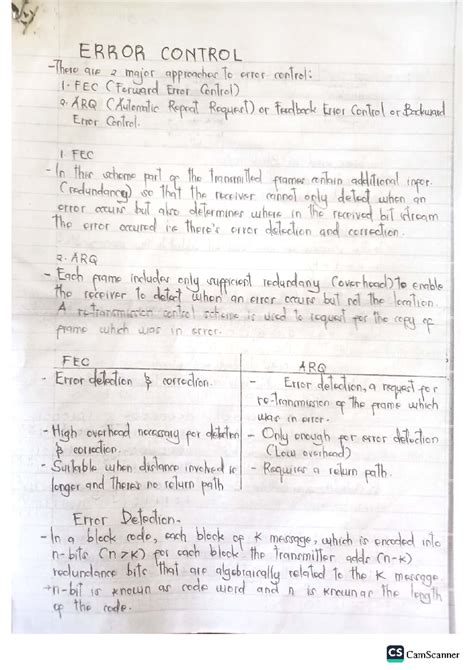 ERROR CONTROL
-There are 2 major approaches to error control:
1. FEC (Forward Error Control)
2. ARQ (Automatic Repeat Request) or Feedback Error Control or Backward
Error Control.
1. FEC
- In this scheme part of the transmitted frames contain additional infor.
(redundancy) so that the receiver cannot only detect when an
error occurs but also determines where in the received bit stream
the error occured ie there's error detection and correction.
2. ARQ
- Each frame includes only sufficient redundany (overhead) to enable
the receiver to detect when an error occurs but not the location.
A re-transmission control scheme is used to request for the copy of
frame which was in error.
FEC ARQ
- Error detection & correction. - Error detection, a request for
re-transmission of the frame which
was in error.
- High overhead necessary for detection - Only enough for error detection
& correction. (Low overhead)
- Suitable when distance involved is - Requires a return path.
longer and there's no return path
Error Detection.
- In a block code, each block of K message, which is encoded into
n-bits (n>K) for each block the transmitter adds (n-k)
redundance bits that are algebraically related to the K message.
→ n-bit is known as code word and n is known as the length
of the code.
CS CamScanner